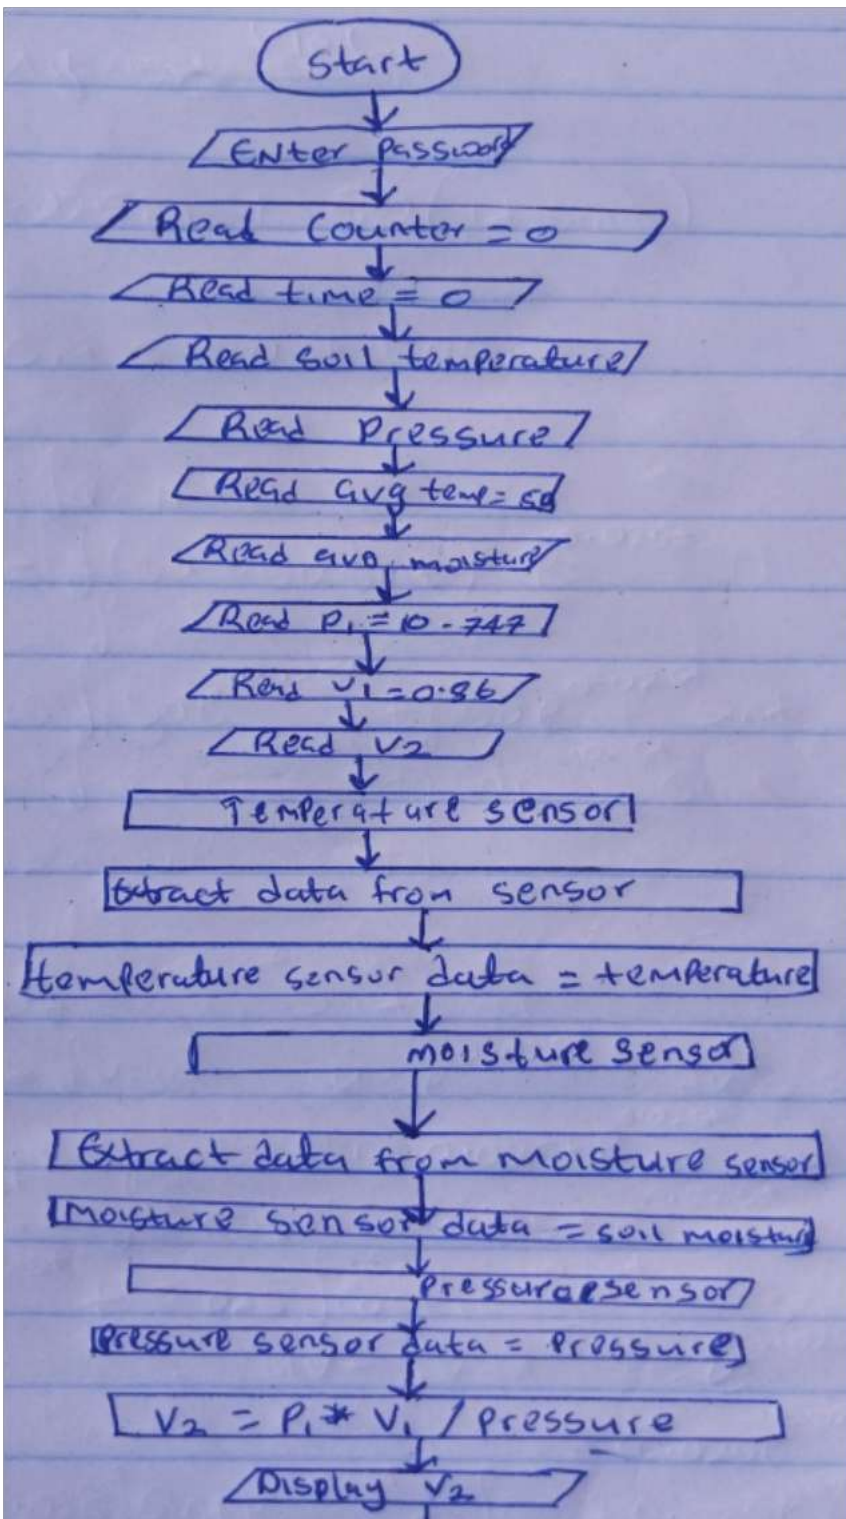 Start
Enter password
Read Counter = 0
Read time = 0
Read soil temperature
Read Pressure
Read avg temp = 50
Read avg moisture
Read P1 = 10.747
Read V1 = 0.86
Read V2
Temperature sensor
Extract data from sensor
temperature sensor data = temperature
moisture sensor
Extract data from moisture sensor
Moisture sensor data = soil moisture
pressure sensor
Pressure sensor data = Pressure
V2 = P1 * V1 / pressure
Display V2